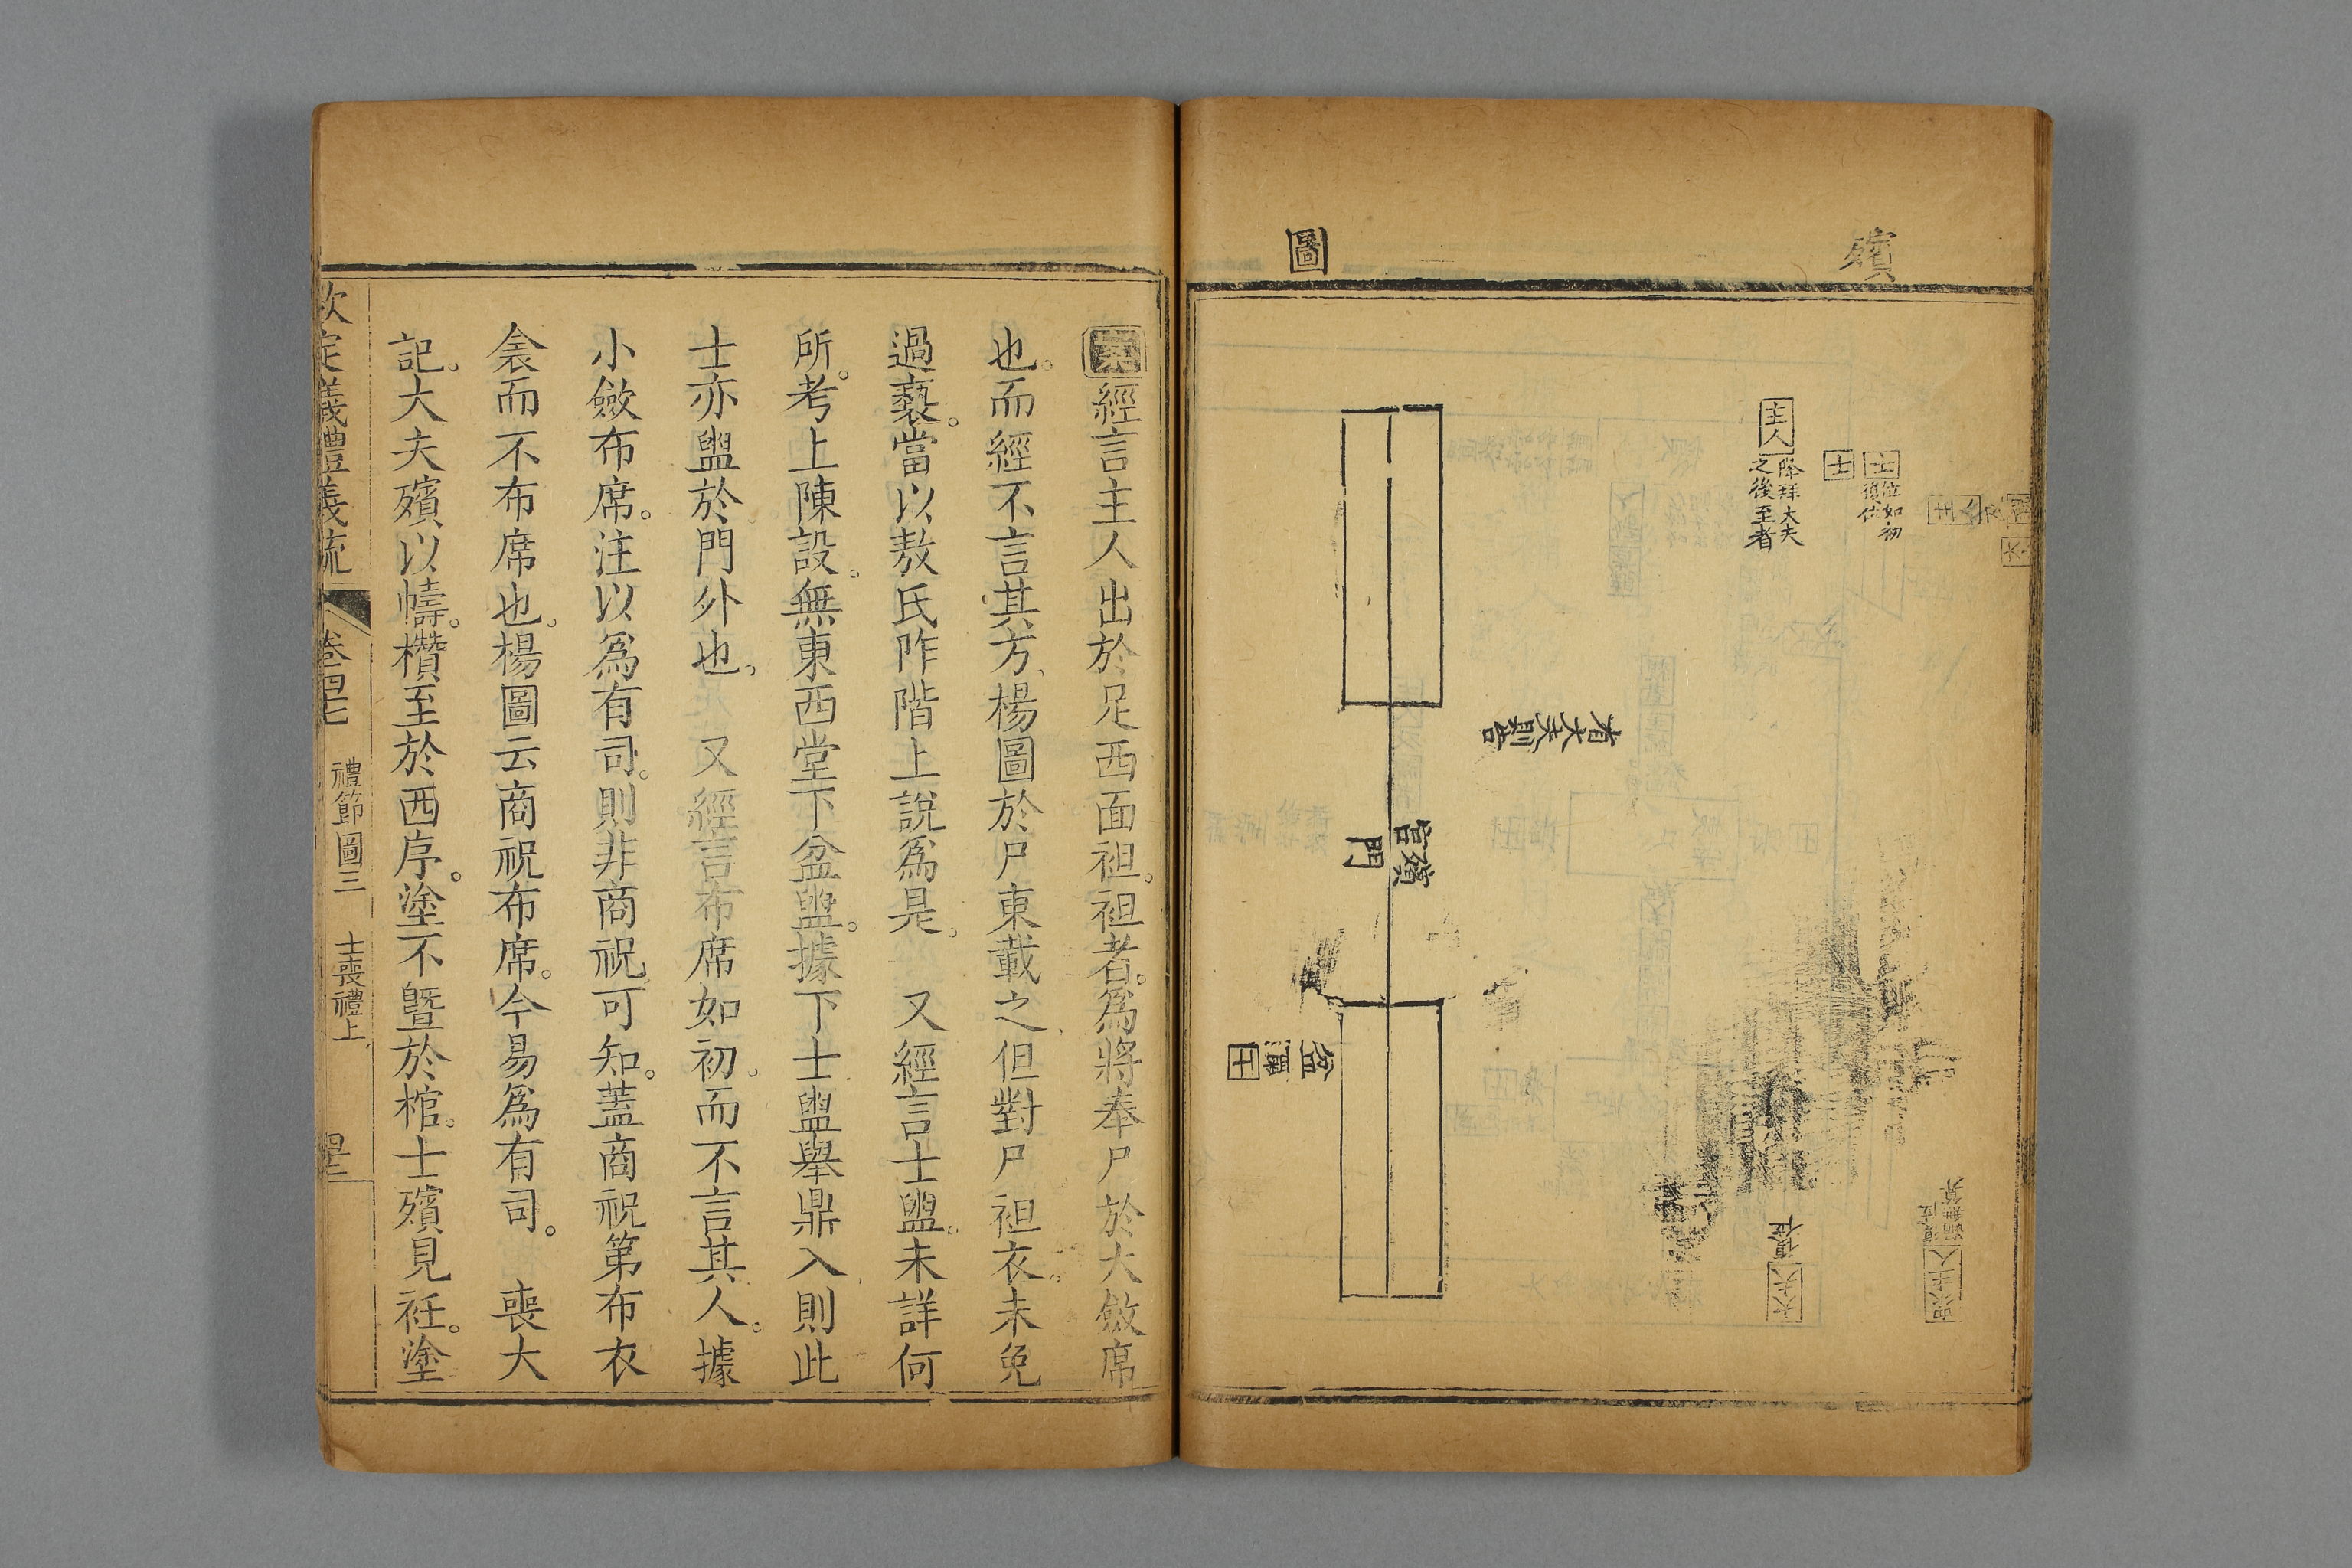 殯
圖
主人
降拜大夫
之後至者
士
位如初
復位
士
有大夫則告
殯宮
門
盆
士
大夫
復位
眾主人
復位
案經言主人出於足西面袒袒者爲將奉尸於大斂席
也而經不言其方楊圖於尸東載之但對尸袒衣未免
過褻當以敖氏阼階上說爲是 又經言士盥未詳何
所考上陳設無東西堂下盆盥據下士盥舉鼎入則此
士亦盥於門外也 又經言布席如初而不言其人據
小斂布席注以爲有司則非商祝可知蓋商祝第布衣
衾而不布席也楊圖云商祝布席今易爲有司 喪大
記大夫殯以幬欑至於西序塗不曁於棺士殯見衽塗
欽定儀禮義疏 卷四七 禮節圖三 士喪禮上